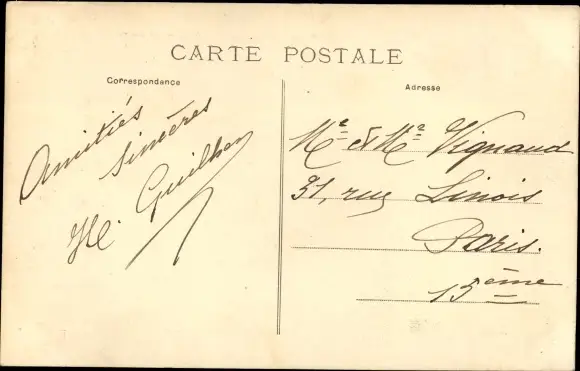 CARTE POSTALE
Correspondance
Amitiés
sincères
H. Guilhem
Adresse
Mr & Mme Vignaud
31, rue Linois
Paris.
15ème